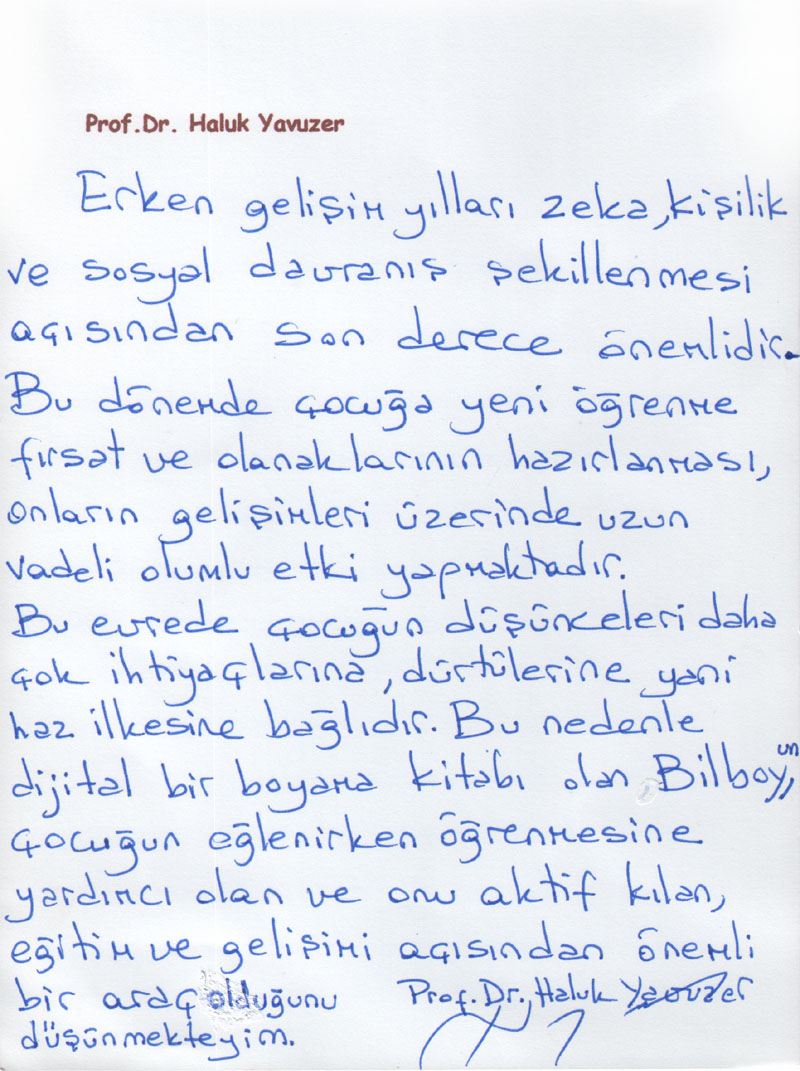 Prof.Dr. Haluk Yavuzer
Erken gelişim yılları zeka, kişilik
ve sosyal davranış şekillenmesi
açısından son derece önemlidir.
Bu dönemde çocuğa yeni öğrenme
fırsat ve olanaklarının hazırlanması,
onların gelişimleri üzerinde uzun
vadeli olumlu etki yapmaktadır.
Bu evrede çocuğun düşünceleri daha
çok ihtiyaçlarına, dürtülerine yani
haz ilkesine bağlıdır. Bu nedenle
dijital bir boyama kitabı olan Bilboy'un,
çocuğun eğlenirken öğrenmesine
yardımcı olan ve onu aktif kılan,
eğitim ve gelişimi açısından önemli
bir araç olduğunu Prof.Dr. Haluk Yavuzer
düşünmekteyim.